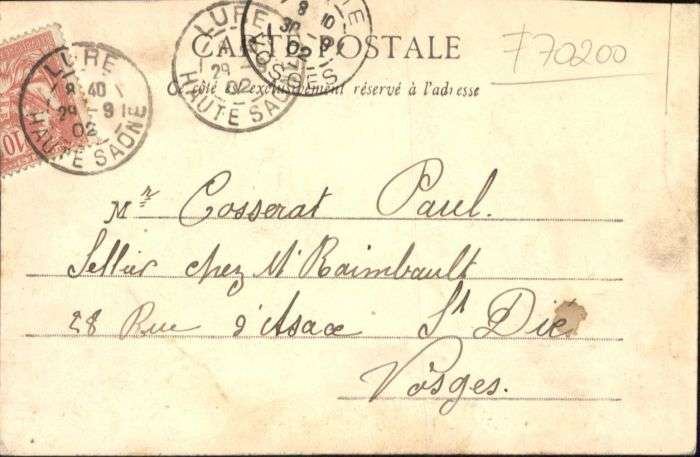 CARTE POSTALE
Ce côté est exclusivement réservé à l'adresse
F70200
LURE
8 40
29 9
02
HAUTE SAÔNE
10
LURE
29
02
HAUTE SAÔNE
IE
8 10
30 9
02
VOSGES
Mr Cosserat Paul.
Sellier chez Mr Raimbault
28 Rue d'Asace St Dié
Vosges.